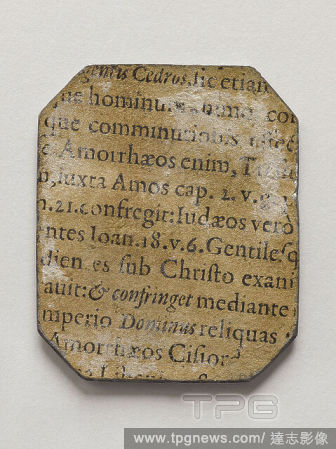 Cedros, sic etiam
que hominum
que comminutionis
Amorrhæos enim,
iuxta Amos cap. 2. v.
n. 21. confregit: Iudæos verò
ntes Ioan. 18. v. 6. Gentiles q
sub Christo exani
auit: & confringet mediante
mperio Dominus reliquas
Amorrhæos
TPG
www.tpgnews.com/達志影像